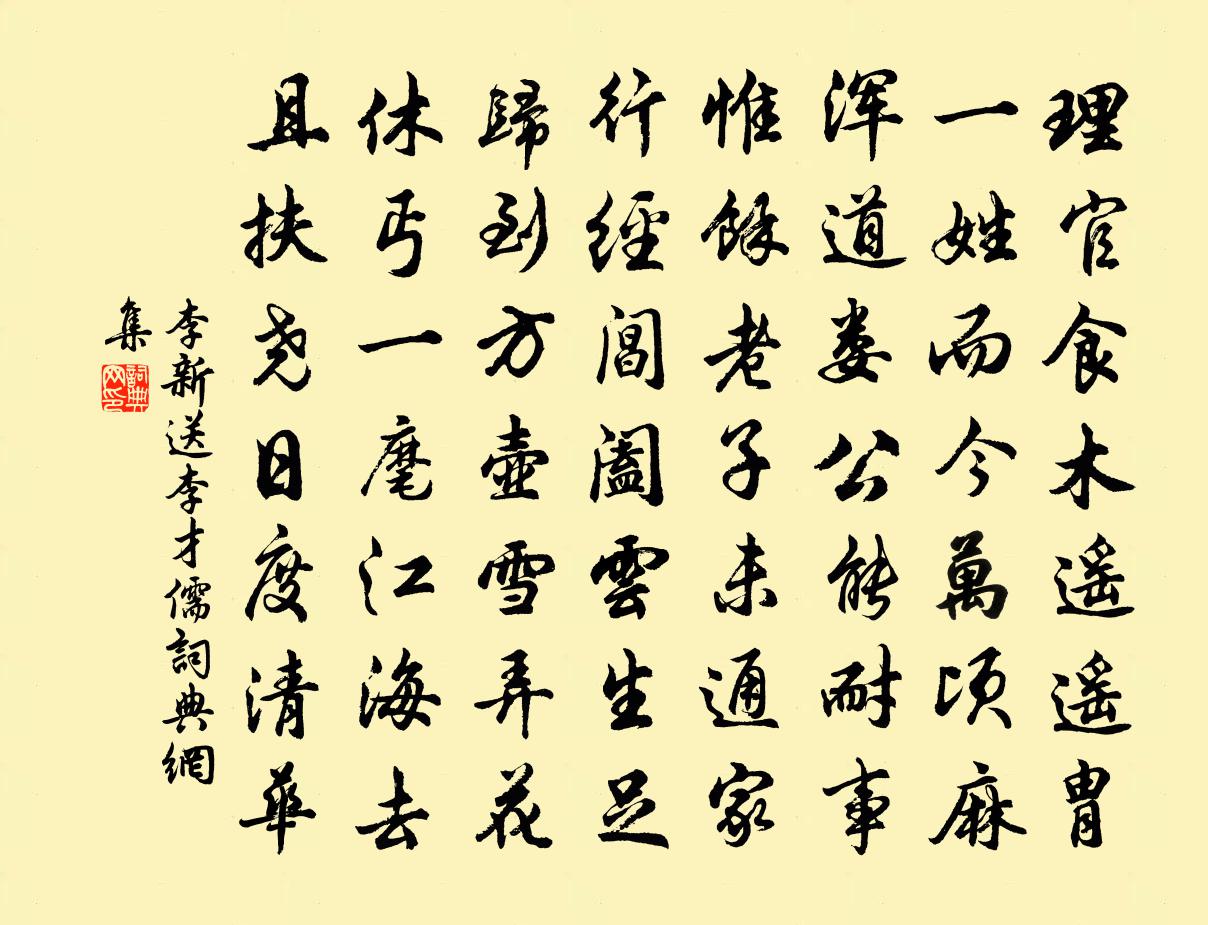 理官食木遥遥胄
一姓而今萬頃麻
浑道娄公能耐事
惟餘老子未通家
行經閶闔雲生足
歸到方壺雪弄花
休丐一麾江海去
且扶尧日度清華
李新送李才儒詞典網
集
詞典
网印